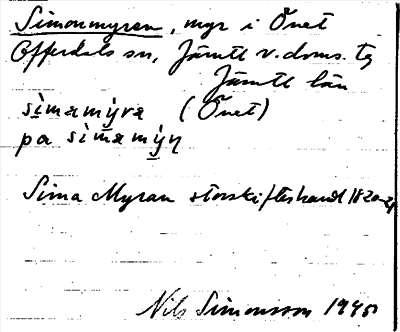 Simonmyren, myr i Önet
Offerdals sn, Jämtl v. doms. tg
Jämtl län
sìmamýra (Önet)
pa sìmamýn
Sima Myran storskifteshandl 1820-21
Nils Simonsson 1940